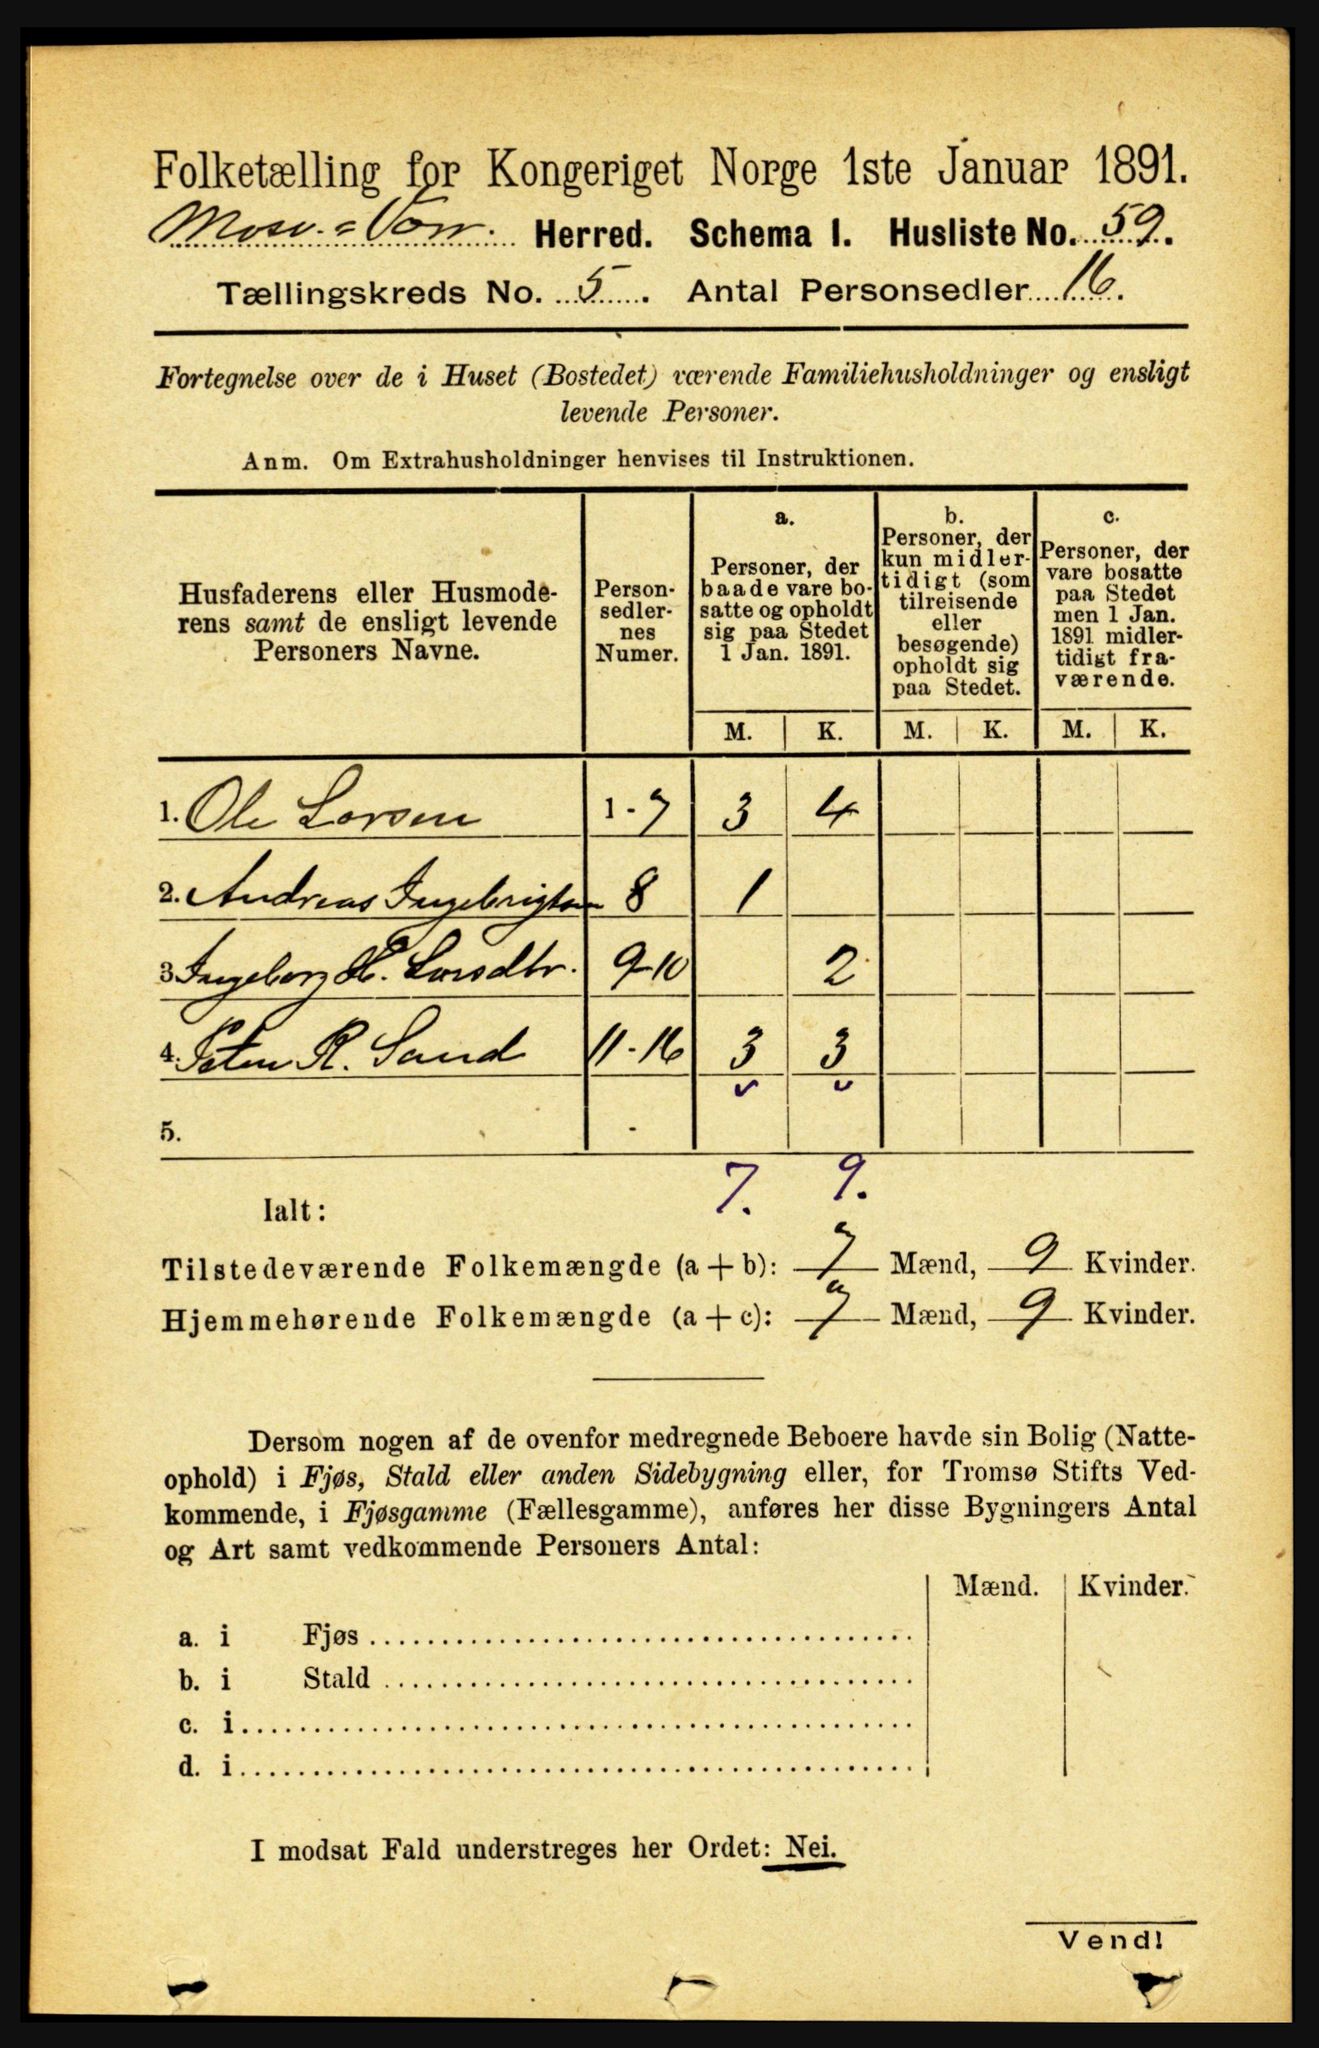 Folketælling for Kongeriget Norge 1ste Januar 1891.
Mosv. = Vær. Herred. Schema I. Husliste No. 59.
Tællingskreds No. 5. Antal Personsedler 16.
Fortegnelse over de i Huset (Bostedet) værende Familiehusholdninger og ensligt
levende Personer.
Anm. Om Extrahusholdninger henvises til Instruktionen.
Husfaderens eller Husmode-
rens samt de ensligt levende
Personers Navne.
Person-
sedler-
nes
Numer.
a.
Personer, der
baade vare bo-
satte og opholdt
sig paa Stedet
1 Jan. 1891.
b.
Personer, der
kun midler-
tidigt (som
tilreisende
eller
besøgende)
opholdt sig
paa Stedet.
c.
Personer, der
vare bosatte
paa Stedet
men 1 Jan.
1891 midler-
tidigt fra-
værende.
M. K. M. K. M. K.
1. Ole Larsen 1-7 3 4
2. Andreas Ingebrigtsen 8 1
3. Ingeborg H. Larsdtr. 9-10 2
4. Peter R. Sand 11-16 3 3
5. -
7. 9.
Ialt:
Tilstedeværende Folkemængde (a + b): 7 Mænd, 9 Kvinder.
Hjemmehørende Folkemængde (a + c): 7 Mænd, 9 Kvinder.
Dersom nogen af de ovenfor medregnede Beboere havde sin Bolig (Natte-
ophold) i Fjøs, Stald eller anden Sidebygning eller, for Tromsø Stifts Ved-
kommende, i Fjøsgamme (Fællesgamme), anføres her disse Bygningers Antal
og Art samt vedkommende Personers Antal:
Mænd. Kvinder.
a. i Fjøs
b. i Stald
c. i
d. i
I modsat Fald understreges her Ordet: Nei.
Vend!